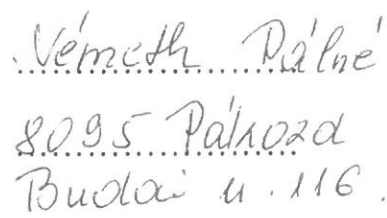 Németh Pálné
8095 Pákozd
Budai u. 116.